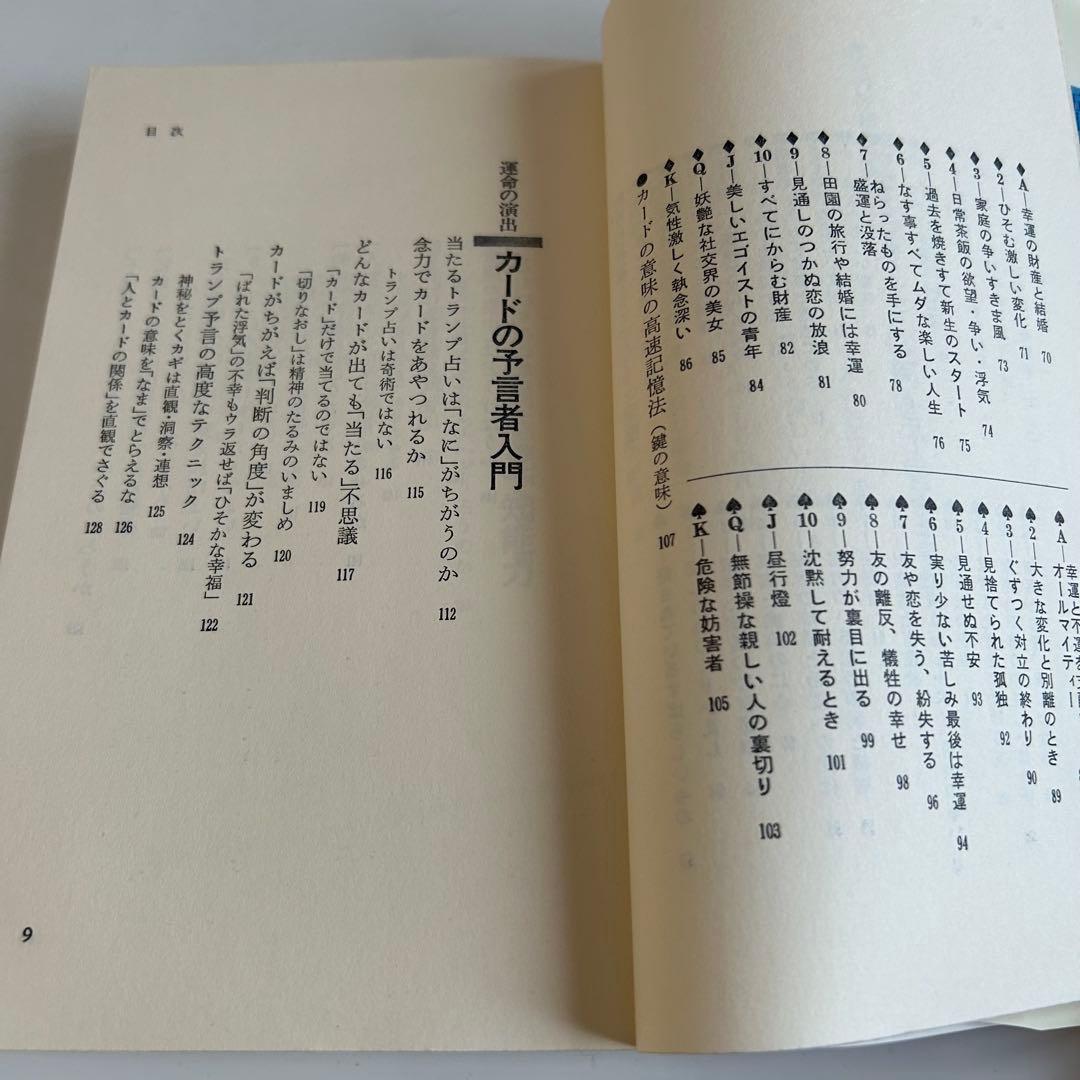 ♦A―幸運の財産と結婚 70
♦2―ひそむ激しい変化 71
♦3―家庭の争いすきま風 73
♦4―日常茶飯の欲望・争い・浮気 74
♦5―過去を焼きすて新生のスタート 75
♦6―なす事すべてムダな楽しい人生 76
ねらったものを手にする 78
♦7―盛運と没落
♦8―田園の旅行や結婚には幸運 80
♦9―見通しのつかぬ恋の放浪 81
♦10―すべてにからむ財産 82
♦J―美しいエゴイストの青年 84
♦Q―妖艶な社交界の美女 85
♦K―気性激しく執念深い 86
●カードの意味の高速記憶法(鍵の意味) 107
♠A―オールマイティー
♠2―大きな変化と別離のとき 89
♠3―ぐずつく対立の終わり 90
♠4―見捨てられた孤独 92
♠5―見通せぬ不安 93
♠6―実り少ない苦しみ最後は幸運 94
♠7―友や恋を失う、紛失する 96
♠8―友の離反、犠牲の幸せ 98
♠9―努力が裏目に出る 99
♠10―沈黙して耐えるとき 101
♠J―昼行燈 102
♠Q―無節操な親しい人の裏切り 103
♠K―危険な妨害者 105
目次
運命の演出
カードの予言者入門
当たるトランプ占いは「なに」がちがうのか 112
念力でカードをあやつれるか 115
トランプ占いは奇術ではない 116
どんなカードが出ても「当たる」不思議 117
「カード」だけで当てるのではない 119
「切りなおし」は精神のたるみのいましめ 120
カードがちがえば「判断の角度」が変わる 121
「ばれた浮気」の不幸もウラ返せば「ひそかな幸福」 122
トランプ予言の高度なテクニック 124
神秘をとくカギは直観・洞察・連想 125
カードの意味を「なま」でとらえるな 126
「人とカードの関係」を直観でさぐる 128
9